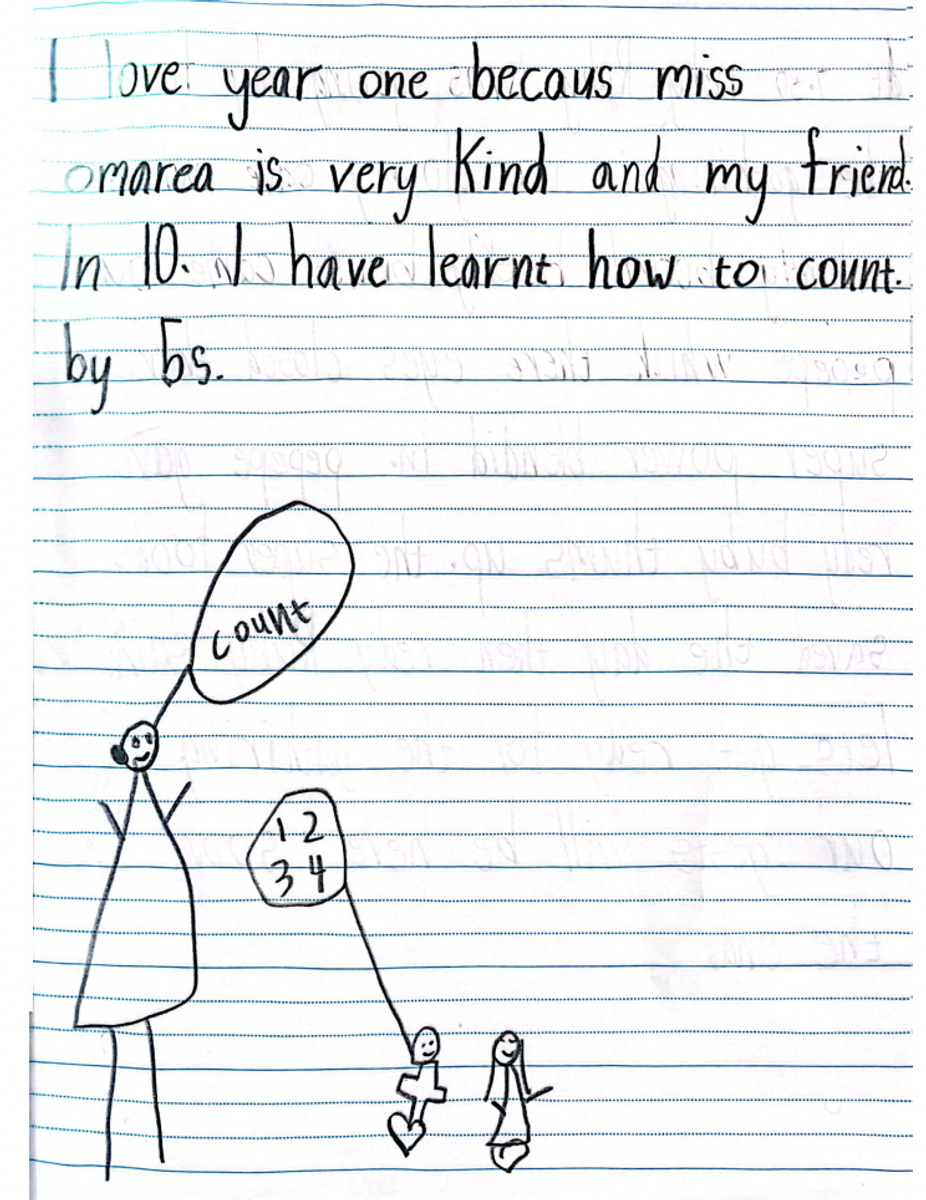 I love year one becaus miss
omarea is very Kind and my friend.
In 10. I have learnt how to count.
by 5s.
count
1 2
3 4